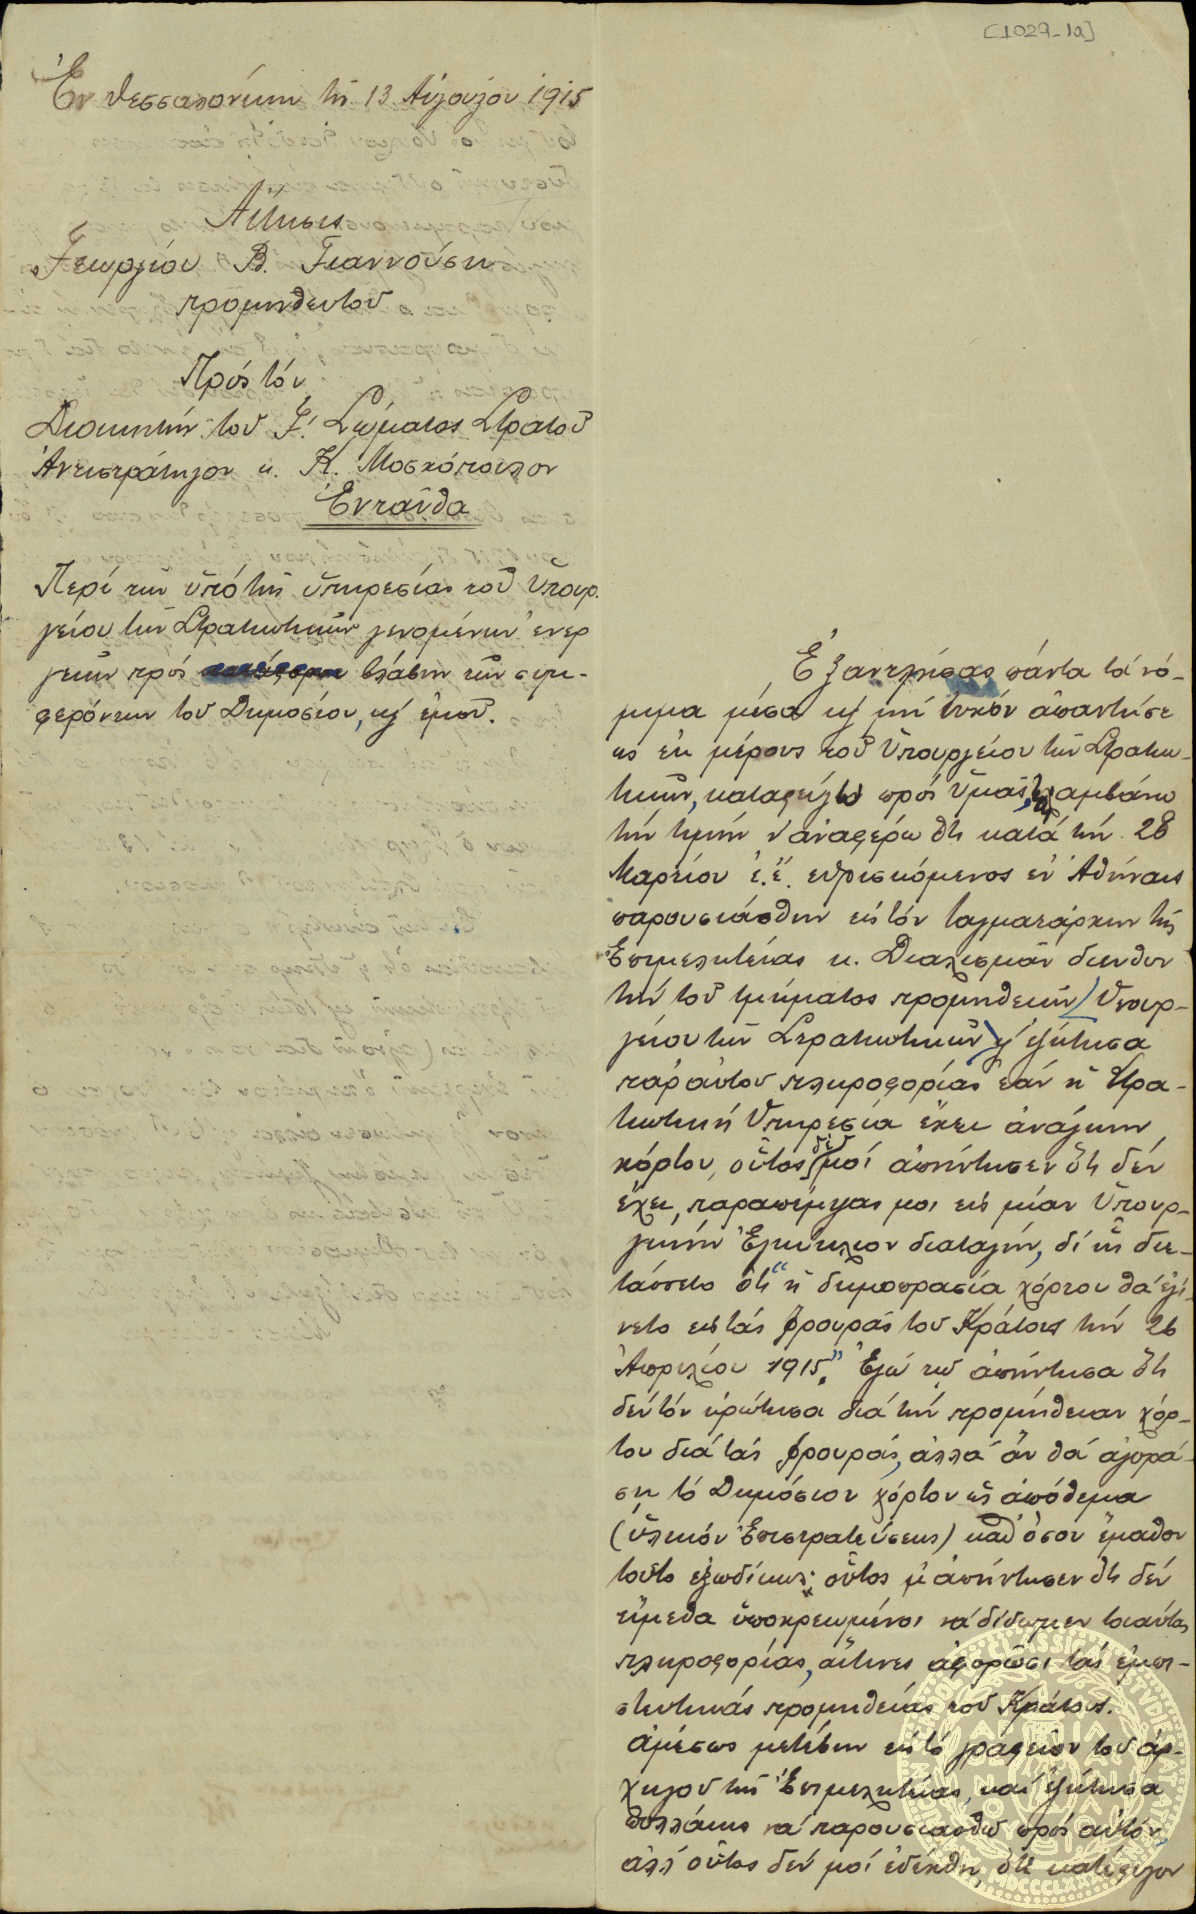 [1029-1α]
Ἐν Θεσσαλονίκῃ τῇ 13 Αὐγούστου 1915
Αἴτησις
Γεωργίου Β. Γιαννούση
προμηθευτοῦ
Πρός τόν
Διοικητήν τοῦ Γ'. Σώματος Στρατοῦ
Ἀντιστράτηγον κ. Κ. Μοσχόπουλον
Ἐνταῦθα
Περί τῶν ὑπό τῆς ὑπηρεσίας τοῦ Ὑπουρ.
γείου τῶν Στρατιωτικῶν γενομένων ἐνερ
γειῶν πρός βλάβην τῶν συμ-
φερόντων τοῦ Δημοσίου, κ' ἐμοῦ.
Ἐξαντλήσας πάντα τά νό-
μιμα μέσα κ' μή τυχόν ἀπαντήσε
ως ἐκ μέρους τοῦ Ὑπουργείου τῶν Στρατιω-
τικῶν, καταφεύγω πρός Ὑμᾶς, λαμβάνω
τήν τιμήν ν' ἀναφέρω ὅτι κατά τήν 28
Μαρτίου ἐ.ἔ. εὑρισκόμενος ἐν Ἀθήναις
παρουσιάσθην εἰς τόν ταγματάρχην τῆς
Ἐπιμελητείας κ. Διαλεισμᾶν διευθυν
τήν τοῦ τμήματος προμηθειῶν (Ὑπουρ-
γείου τῶν Στρατιωτικῶν) κ' ἐζήτησα
παρ' αὐτοῦ πληροφορίας ἐάν ἡ Στρα-
τιωτική Ὑπηρεσία ἔχει ἀνάγκην
χόρτου, οὗτος δέ μοί ἀπήντησεν ὅτι δέν
ἔχει, παραπέμψας μοι εἰς μίαν Ὑπουρ-
γικήν Ἐγκύκλιον διαταγήν, δι' ἧς διε-
τάσσετο ὅτι "ἡ δημοπρασία χόρτου θά ἐγί-
νετο εἰς τάς φρουράς τοῦ Κράτους τήν 26
Ἀπριλίου 1915." Ἐγώ τῷ ἀπήντησα ὅτι
δέν τόν ἠρώτησα διά τήν προμήθειαν χόρ-
του διά τάς φρουράς, ἀλλά ἄν θά ἀγορά-
σῃ τό Δημόσιον χόρτον ὡς ἀπόθεμα
(ὑλικόν Ἐπιστρατεύσεως) καθ' ὅσον ἔμαθον
τοῦτο ἐξωδίκως; οὗτος μ' ἀπήντησεν ὅτι δέν
εἴμεθα ὑποχρεωμένοι νά δίδωμεν τοιαύτας
πληροφορίας, αἵτινες ἀφορῶσι τάς ἐμπι-
στευτικάς προμηθείας τοῦ Κράτους.
Ἀμέσως μετέβην εἰς τό γραφεῖον τοῦ ἀρ-
χηγοῦ τῆς Ἐπιμελητείας, καί ἐζήτησα
πολλάκις νά παρουσιασθῶ πρός αὐτόν,
ἀλλ' οὗτος δέν μοί ἐδέχθη, ὅτε κατέφυγον